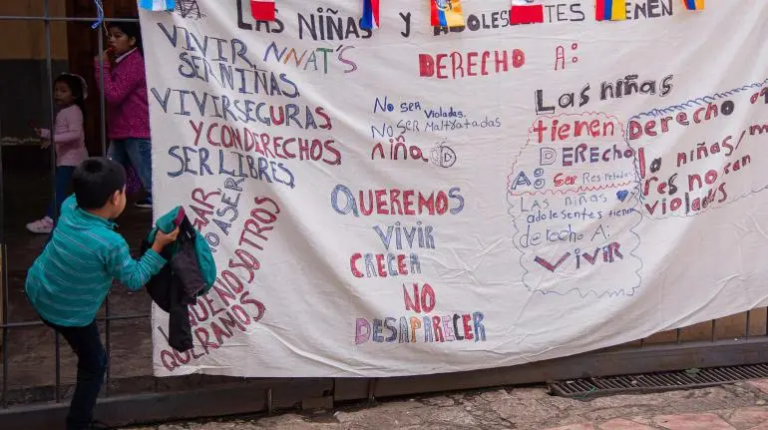 LAS NIÑAS y ADOLESCENTES TIENEN
DERECHO A:
VIVIR, NNAT'S
SER NIÑAS
VIVIR SEGURAS
Y CON DERECHOS
SER LIBRES
NO ASER
LO QUE NOSOTROS
QUERAMOS
NO SER VioladAs.
NO SER MALTratadas
niña
QUEREMOS
VIVIR
CRECER
NO
DESAPARECER
LAS niñas
tienen
DERECHO
A: Ser Respetadas
LAS niñas
adolesentes tienen
derecho A:
VIVIR
DERECHO
la niñas/
res no can
violadas